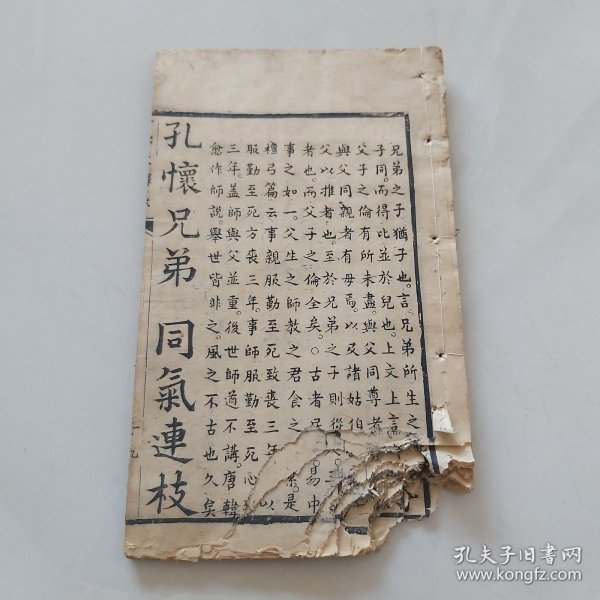 兄弟之子猶子也。言兄弟所生之
子同。而得比並於兒也。上文上言
父子之倫有所未盡。與父同尊者
與父同親者有母焉。以及諸姑伯
父以推者也。至於兄弟之子則從
者也。而父子之倫全矣。○古者 易巾
事之如一。父生之師教之君食之 是
檀弓篇云事親服勤至死致喪三年 以
服勤至死方喪三年。事師服勤至死心
三年。盖師與父並重。後世師道不講。唐韓
愈作師說。舉世皆非之。風之不古也久矣
孔懷兄弟 同氣連枝
十九
孔夫子旧书网
www.kongfz.com